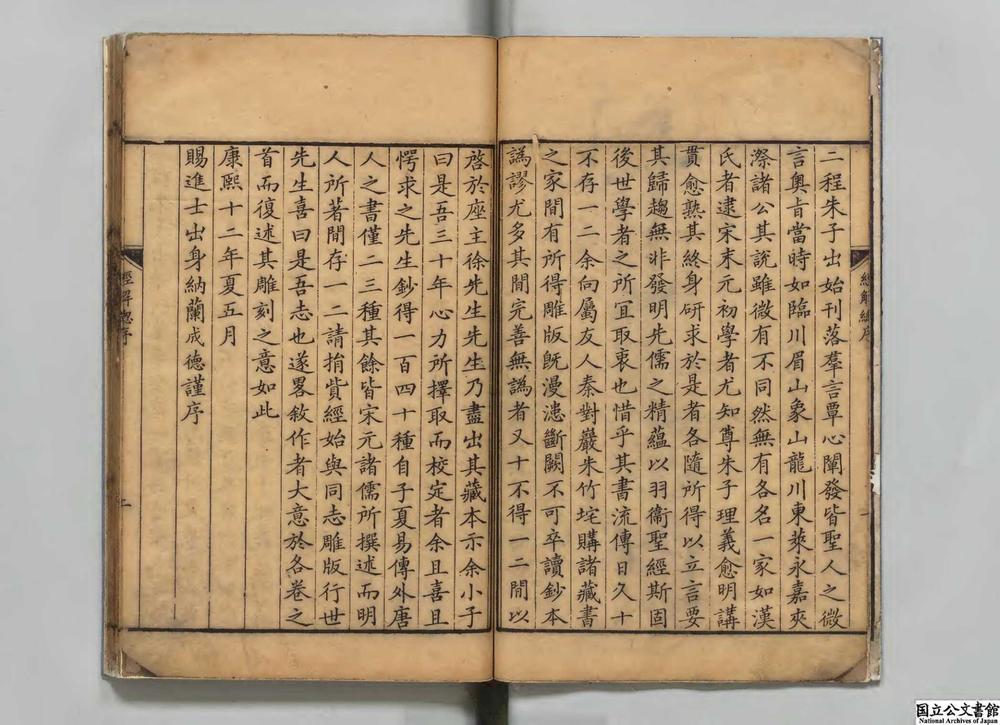 二程朱子出始刊落羣言覃心闡發皆聖人之微
言奧旨當時如臨川眉山象山龍川東萊永嘉夾
漈諸公其說雖微有不同然無有各名一家如漢
氏者逮宋末元初學者尤知尊朱子理義愈明講
貫愈熟其終身研求於是者各隨所得以立言要
其歸趨無非發明先儒之精蘊以羽衞聖經斯固
後世學者之所宜取衷也惜乎其書流傳日久十
不存一二余向屬友人秦對巖朱竹垞購諸藏書
之家間有所得雕版旣漫漶斷闕不可卒讀鈔本
譌謬尤多其間完善無譌者又十不得一二間以
啓於座主徐先生先生乃盡出其藏本示余小子
曰是吾三十年心力所擇取而校定者余且喜且
愕求之先生鈔得一百四十種自子夏易傳外唐
人之書僅二三種其餘皆宋元諸儒所撰述而明
人所著間存一二請捐貲經始與同志雕版行世
先生喜曰是吾志也遂畧敘作者大意於各卷之
首而復述其雕刻之意如此
康熙十二年夏五月
賜進士出身納蘭成德謹序
經解總序
二
国立公文書館
National Archives of Japan